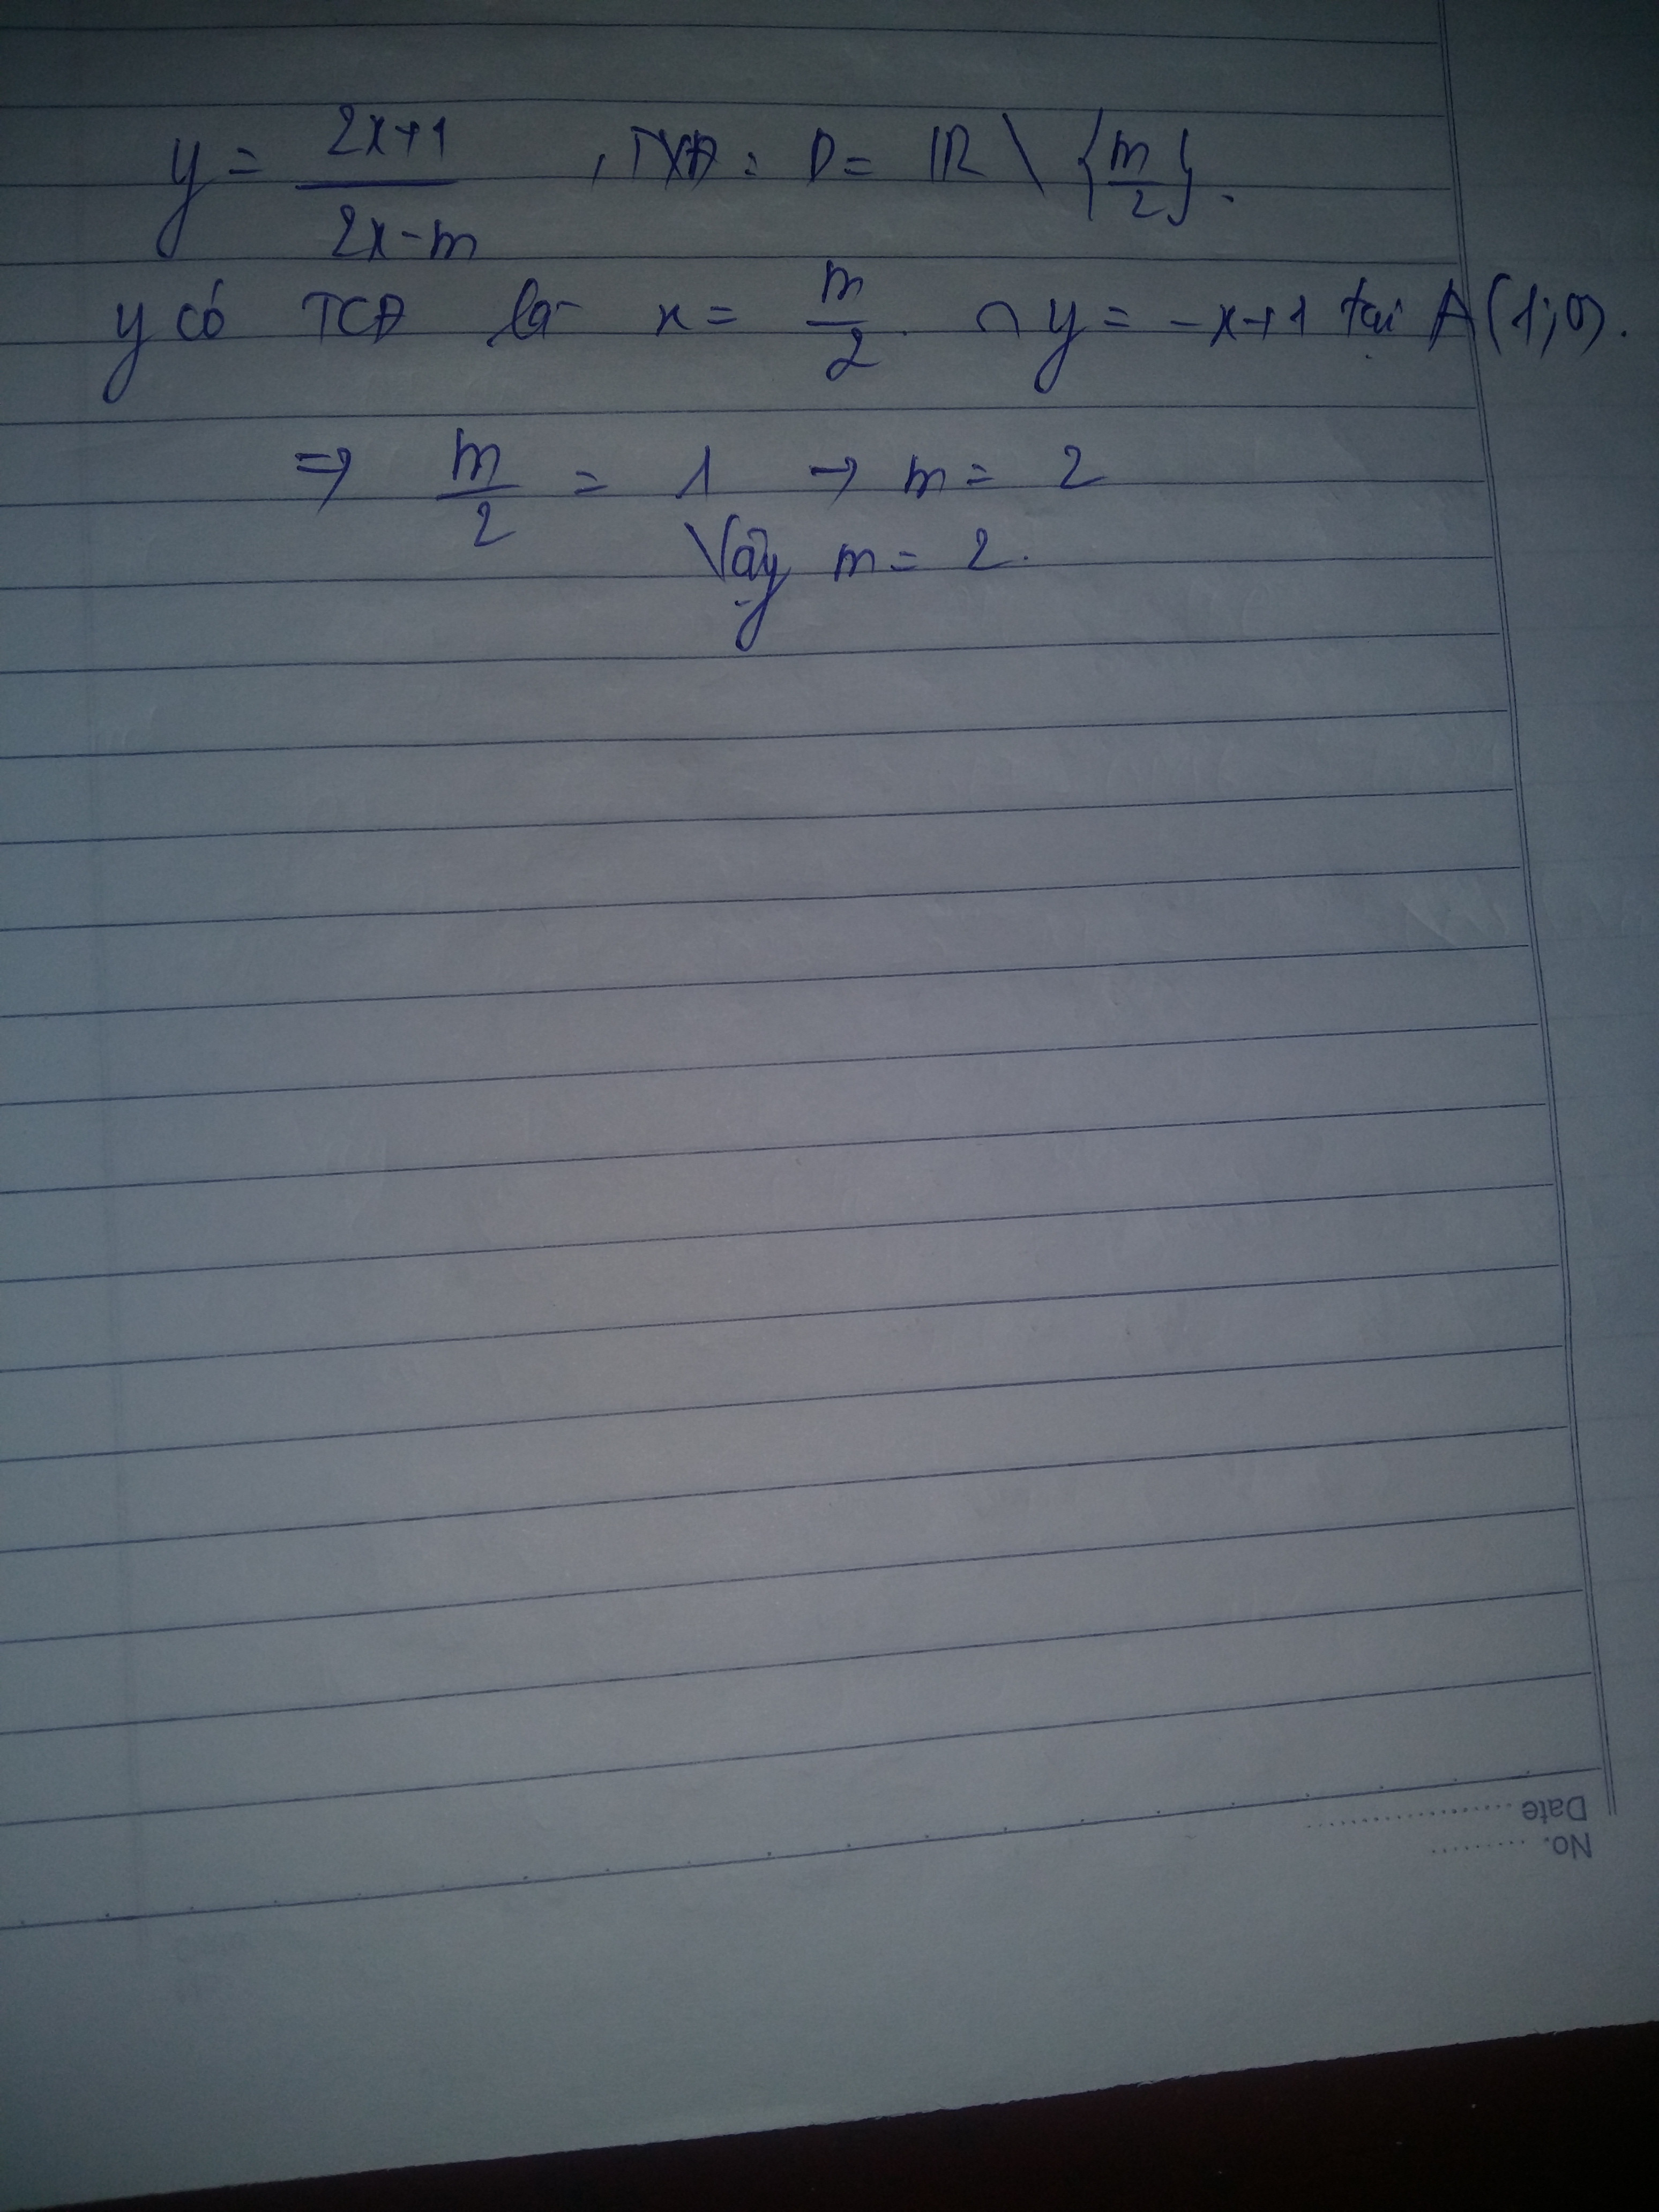 y = \frac{2x+1}{2x-m} , TXĐ : D = ℝ \ {\frac{m}{2}}.
y có TCĐ là x = \frac{m}{2} ∩ y = -x+1 tại A(1;0).
⇒ \frac{m}{2} = 1 → m = 2
Vậy m = 2.
Date
No.